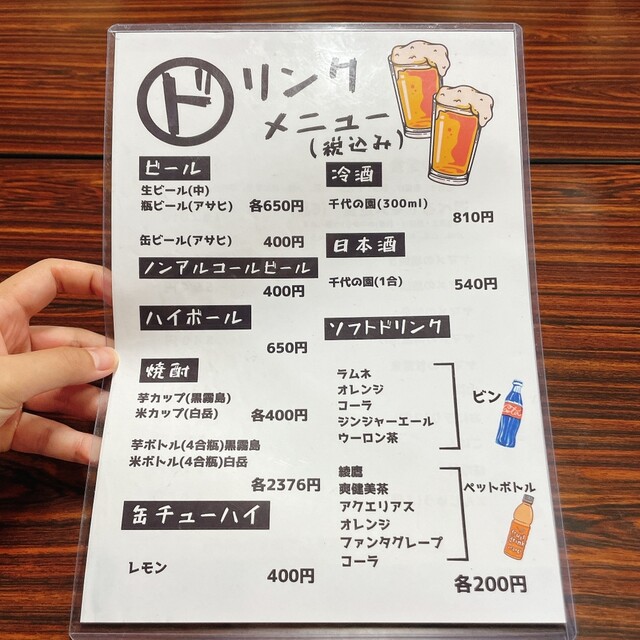 ドリンク
メニュー
(税込み)
ビール
生ビール(中)
瓶ビール(アサヒ) 各650円
缶ビール(アサヒ) 400円
ノンアルコールビール
400円
ハイボール
650円
焼酎
芋カップ(黒霧島)
米カップ(白岳) 各400円
芋ボトル(4合瓶)黒霧島
米ボトル(4合瓶)白岳
各2376円
缶チューハイ
レモン 400円
冷酒
千代の園(300ml)
810円
日本酒
千代の園(1合) 540円
ソフトドリンク
ラムネ
オレンジ
コーラ
ジンジャーエール
ウーロン茶
ビン
綾鷹
爽健美茶
アクエリアス
オレンジ
ファンタグレープ
コーラ
ペットボトル
各200円